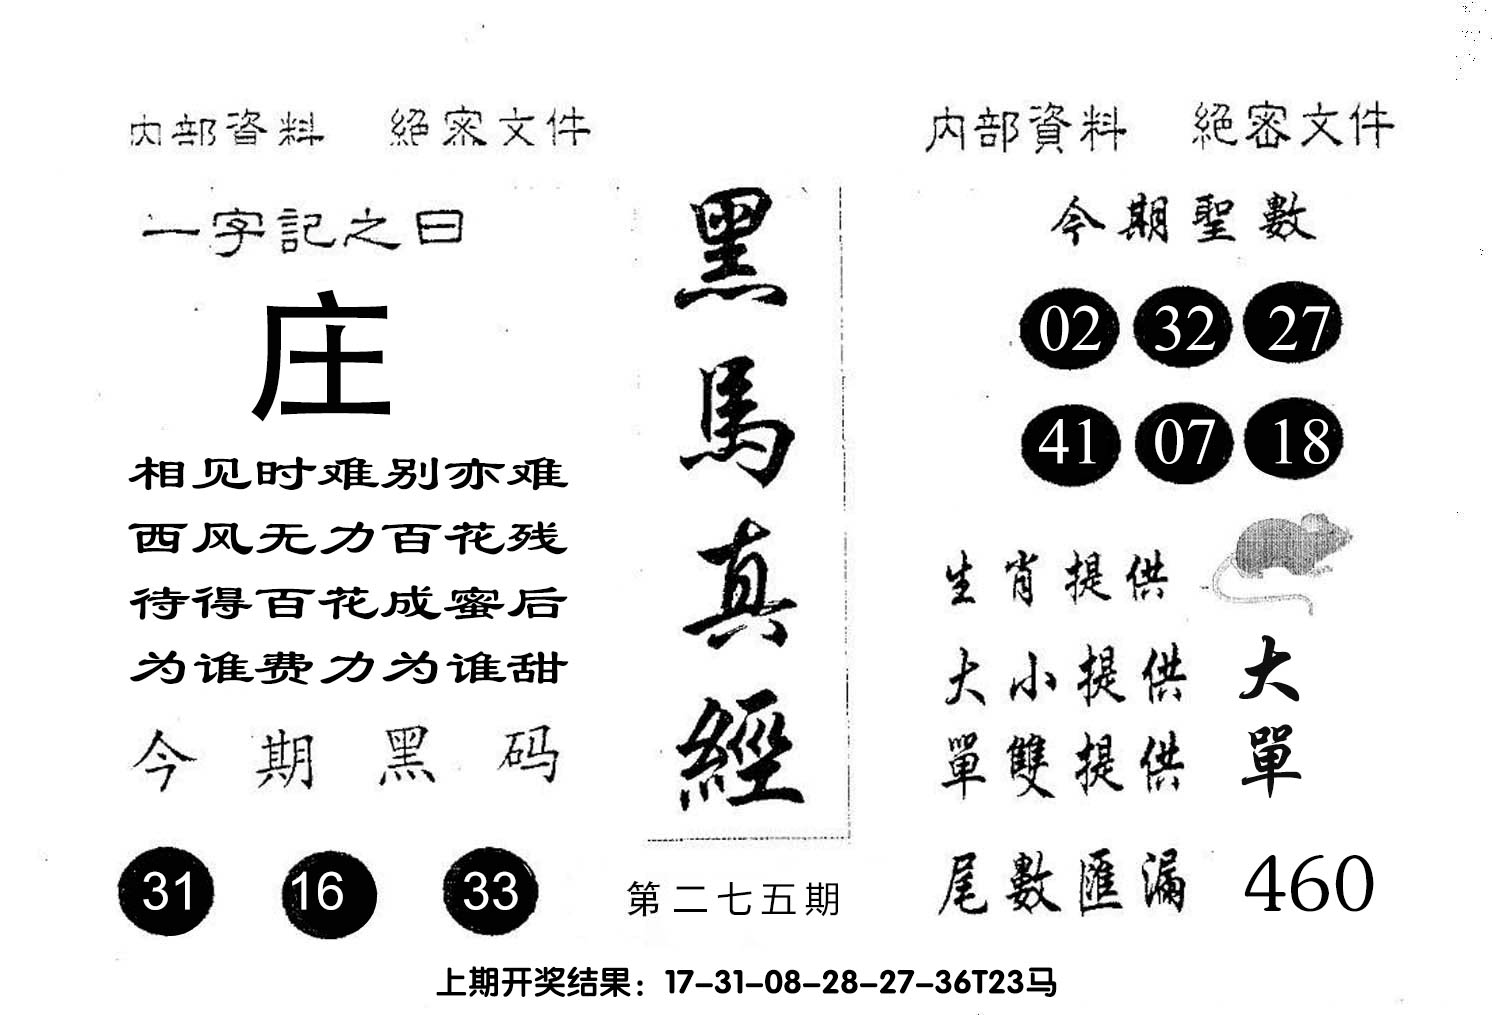 内部資料 絕密文件
一字記之曰
庄
相见时难别亦难
西风无力百花残
待得百花成蜜后
为谁费力为谁甜
今期黑码
31 16 33
黑馬真經
第二七五期
内部資料 絕密文件
今期聖數
02 32 27
41 07 18
生肖提供
大小提供 大
單雙提供 單
尾數匯漏 460
上期开奖结果：17-31-08-28-27-36T23马